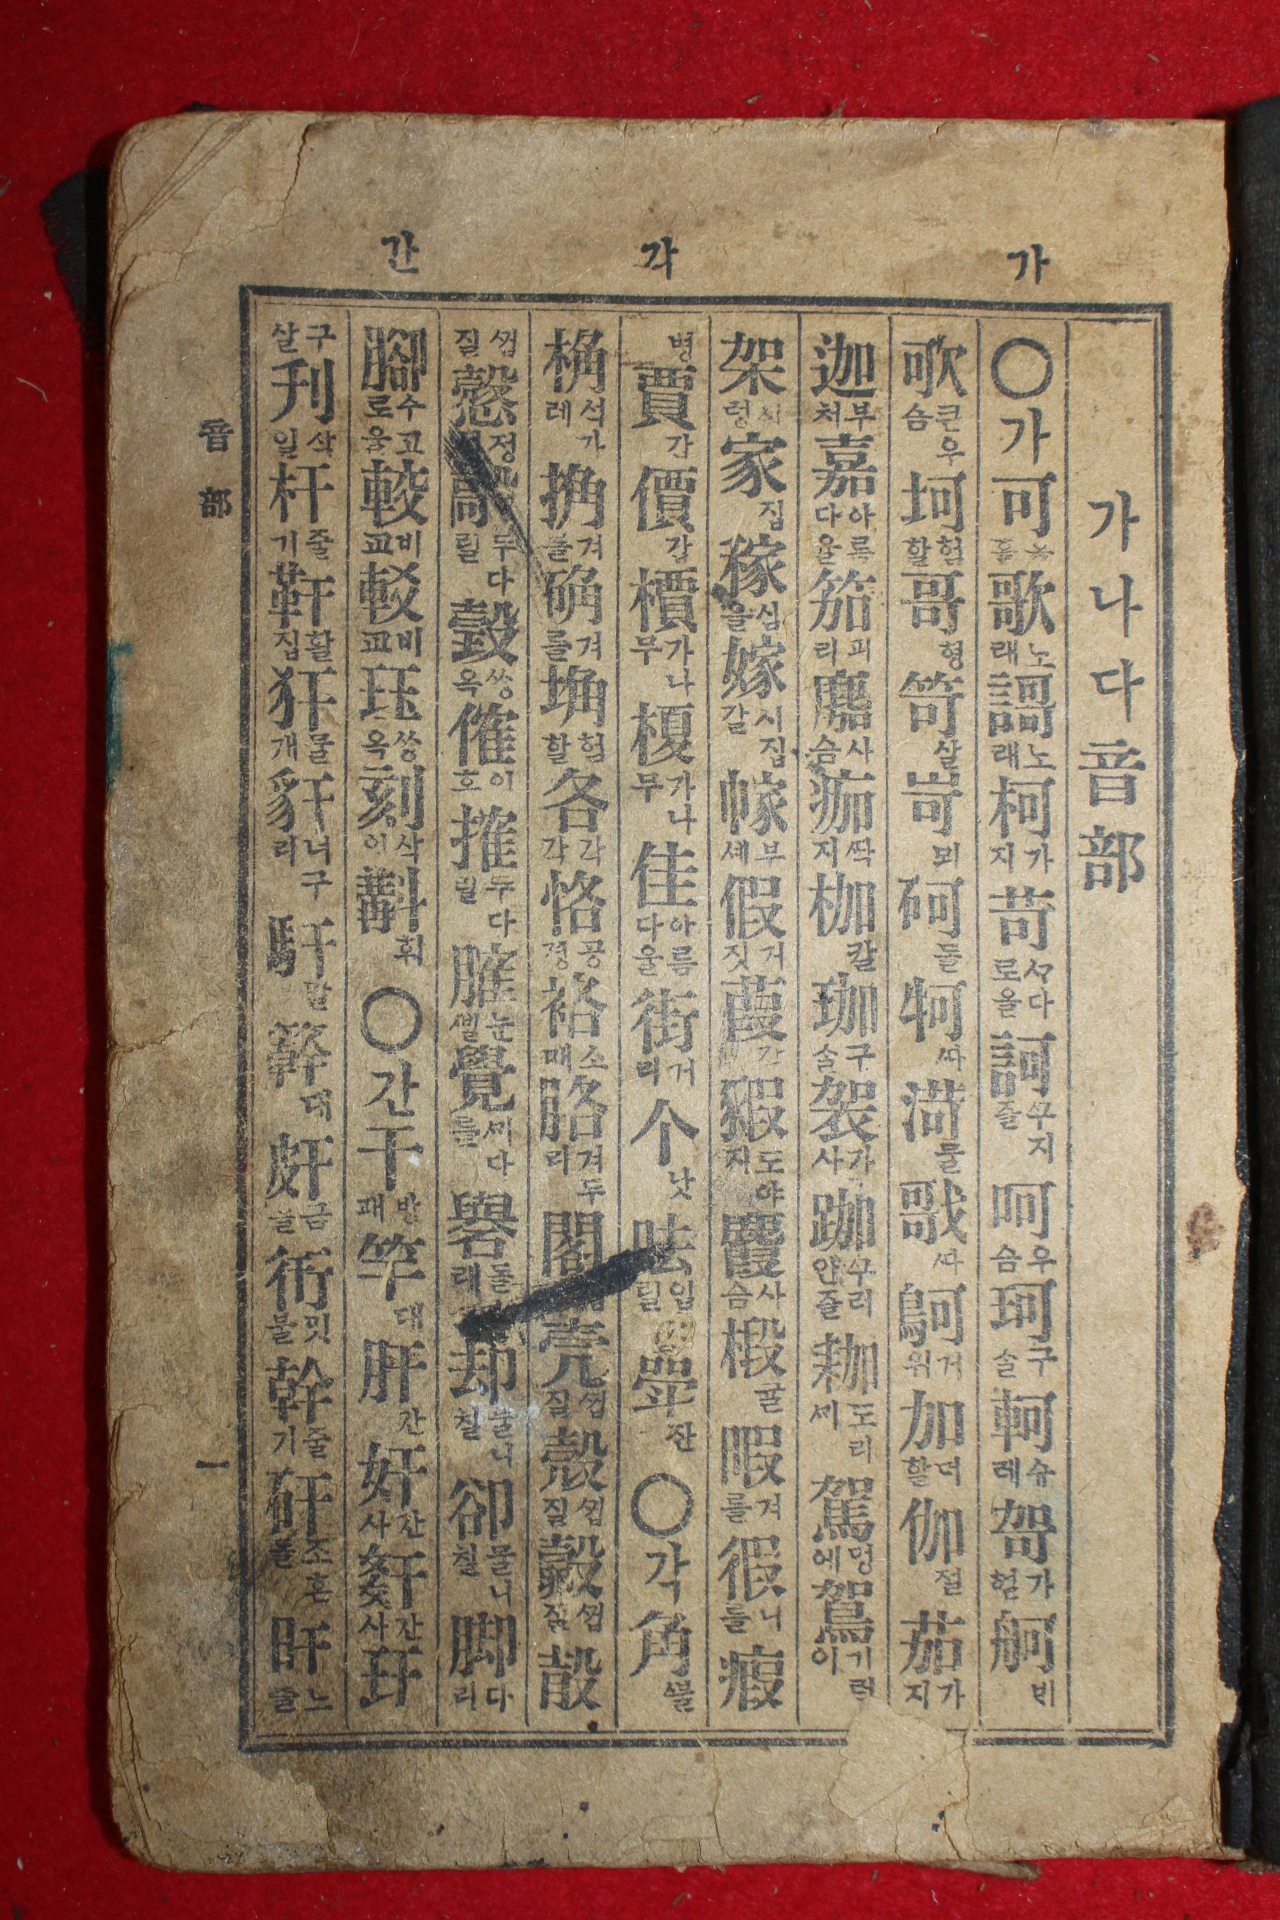 가 각 간
가나다音部
○가可歌노래謌노래柯가지苛까다로울訶꾸지즐呵우슴珂구슬軻슈레哿가헌舸비
歌큰우슴坷험할哥형笴살岢뫼砢돌牱따滒믈戨따鴚거위加더할伽절茄가지
迦부처嘉아름다울笳피리麚사슴痂딱지枷칼珈구슬袈가사跏꾸리안즐耞도리께駕멍에鴐기럭이
架시렁家집稼심을嫁시집갈幏부세假거짓葭갈豭도야지麚사슴椵귤暇겨를徦니를瘕
병賈갑價갑檟가나무榎가나무佳아름다울街거리个낫呿입斝잔○각角뿔
桷석가레捔겨를确겨를埆험할各각각恪공경袼소매胳겨두리閣집壳껍질殼껍질㱿껍질殻
껍질愨정毃두다릴瑴쌍옥傕이推두다릴䑏눈覺깨다를礐돌却물니칠卻물니칠脚다리
腳수고로울較비교駮비교珏쌍옥刻삭이斠휘○간干방패竿대肝간奸간사姧간사玕
구살刊삭일杆줄기靬활집犴개豻너구리馯말簳대皯금衎밋불幹줄기矸조흔돌旰느즐
音部 一